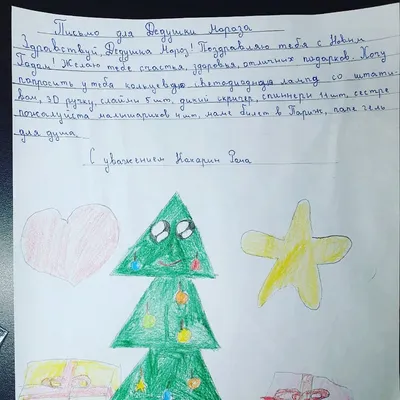 Письмо для Дедушки Мороза
Здравствуй, Дедушка Мороз! Поздравляю тебя с Новым
Годом! Желаю тебе счастья, здоровья, отличных подарков. Хочу
попросить у тебя кольцевую светодиодную лампу со штати-
вом, 3D ручку, слаймы 5 шт, дикий скричер, спиннеры 11 шт, сестре
пожалуйста малышариков 4 шт, маме билет в Париж, папе гель
для душа.
С уважением Рома